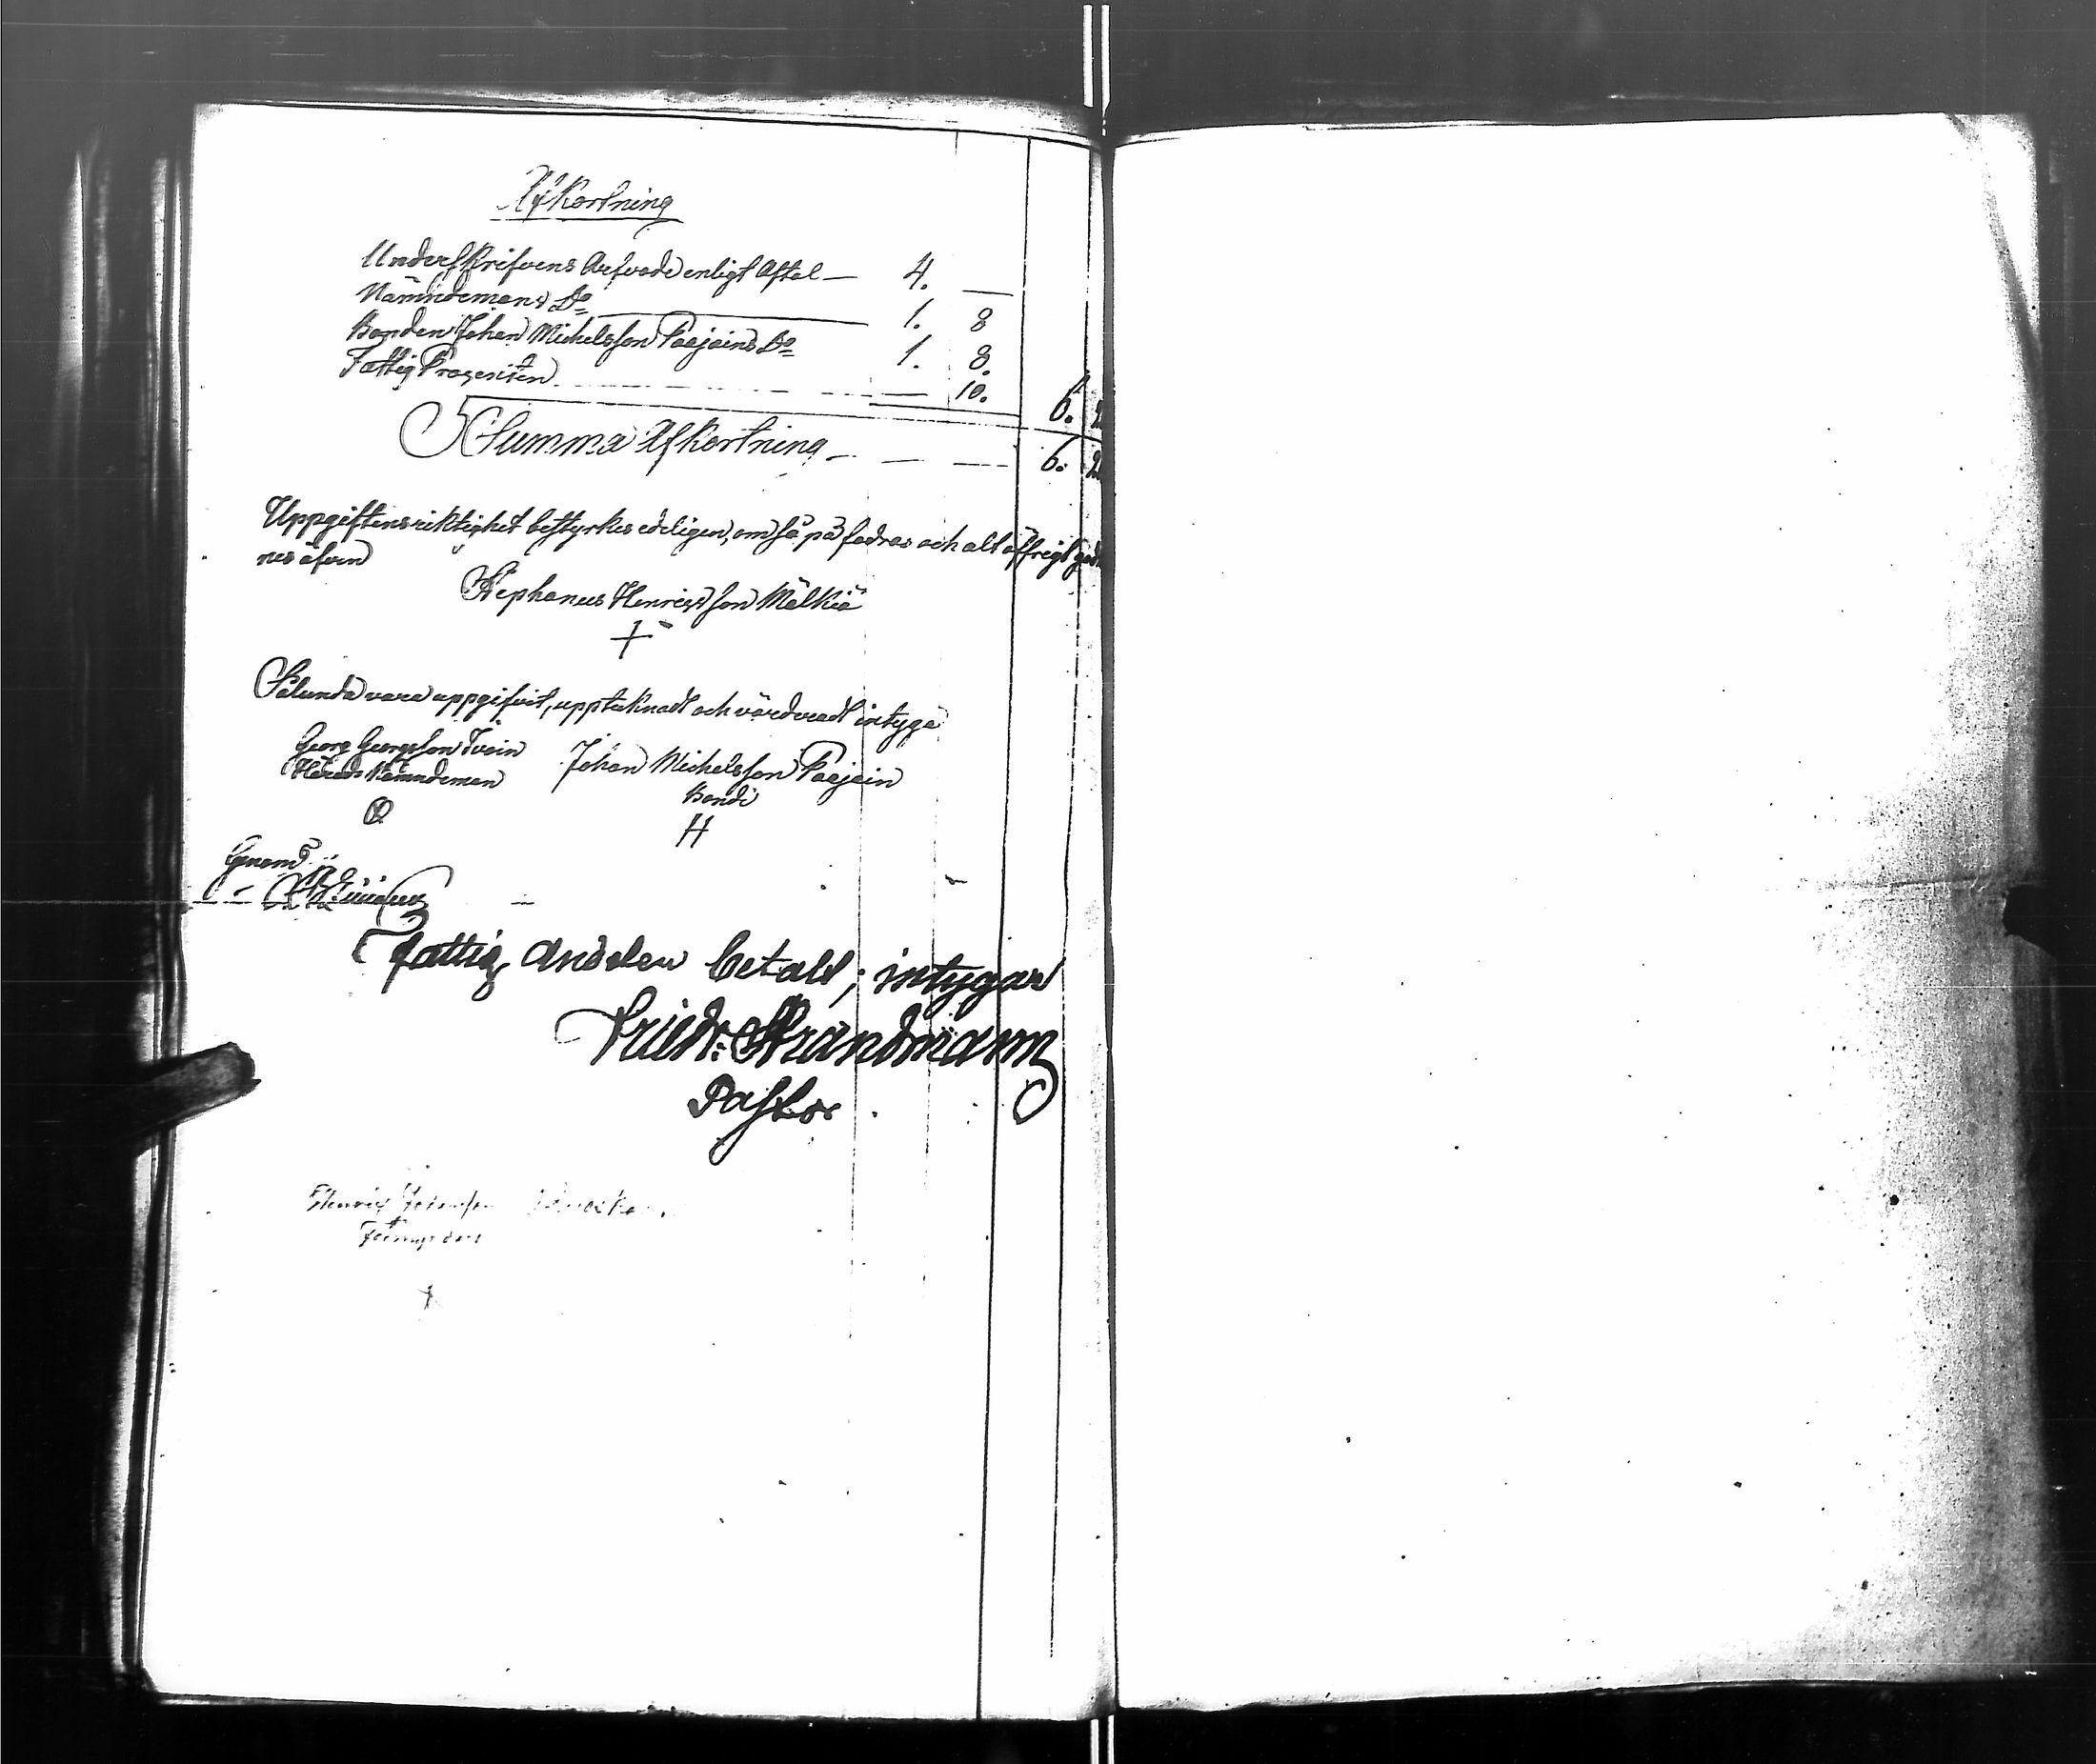 Afkortning
Underskrifvens Arfvode enligt Aftal — 4. —
Nämndemans Do 1. 8
Bonden Johan Michelsson Paajains Do 1. 8.
Fattig Procenten — 10. 6.
Summa Afkortning — 6.
Uppgiftens riktighet bestyrkes edeligen, om så på fodras och alt öffrigt god
nes äfven
Stephanus Henricsson Mälkiä
+
Sålunda vara uppgifvit, upptecknadt och värderadt intyga
Georg Georgsson Johan Michelsson Paajain
Härads Nämndeman Bonde
H
fattig Andelen betald; intygar
Friedr: Strandmann
Pastor
Henric Johansson